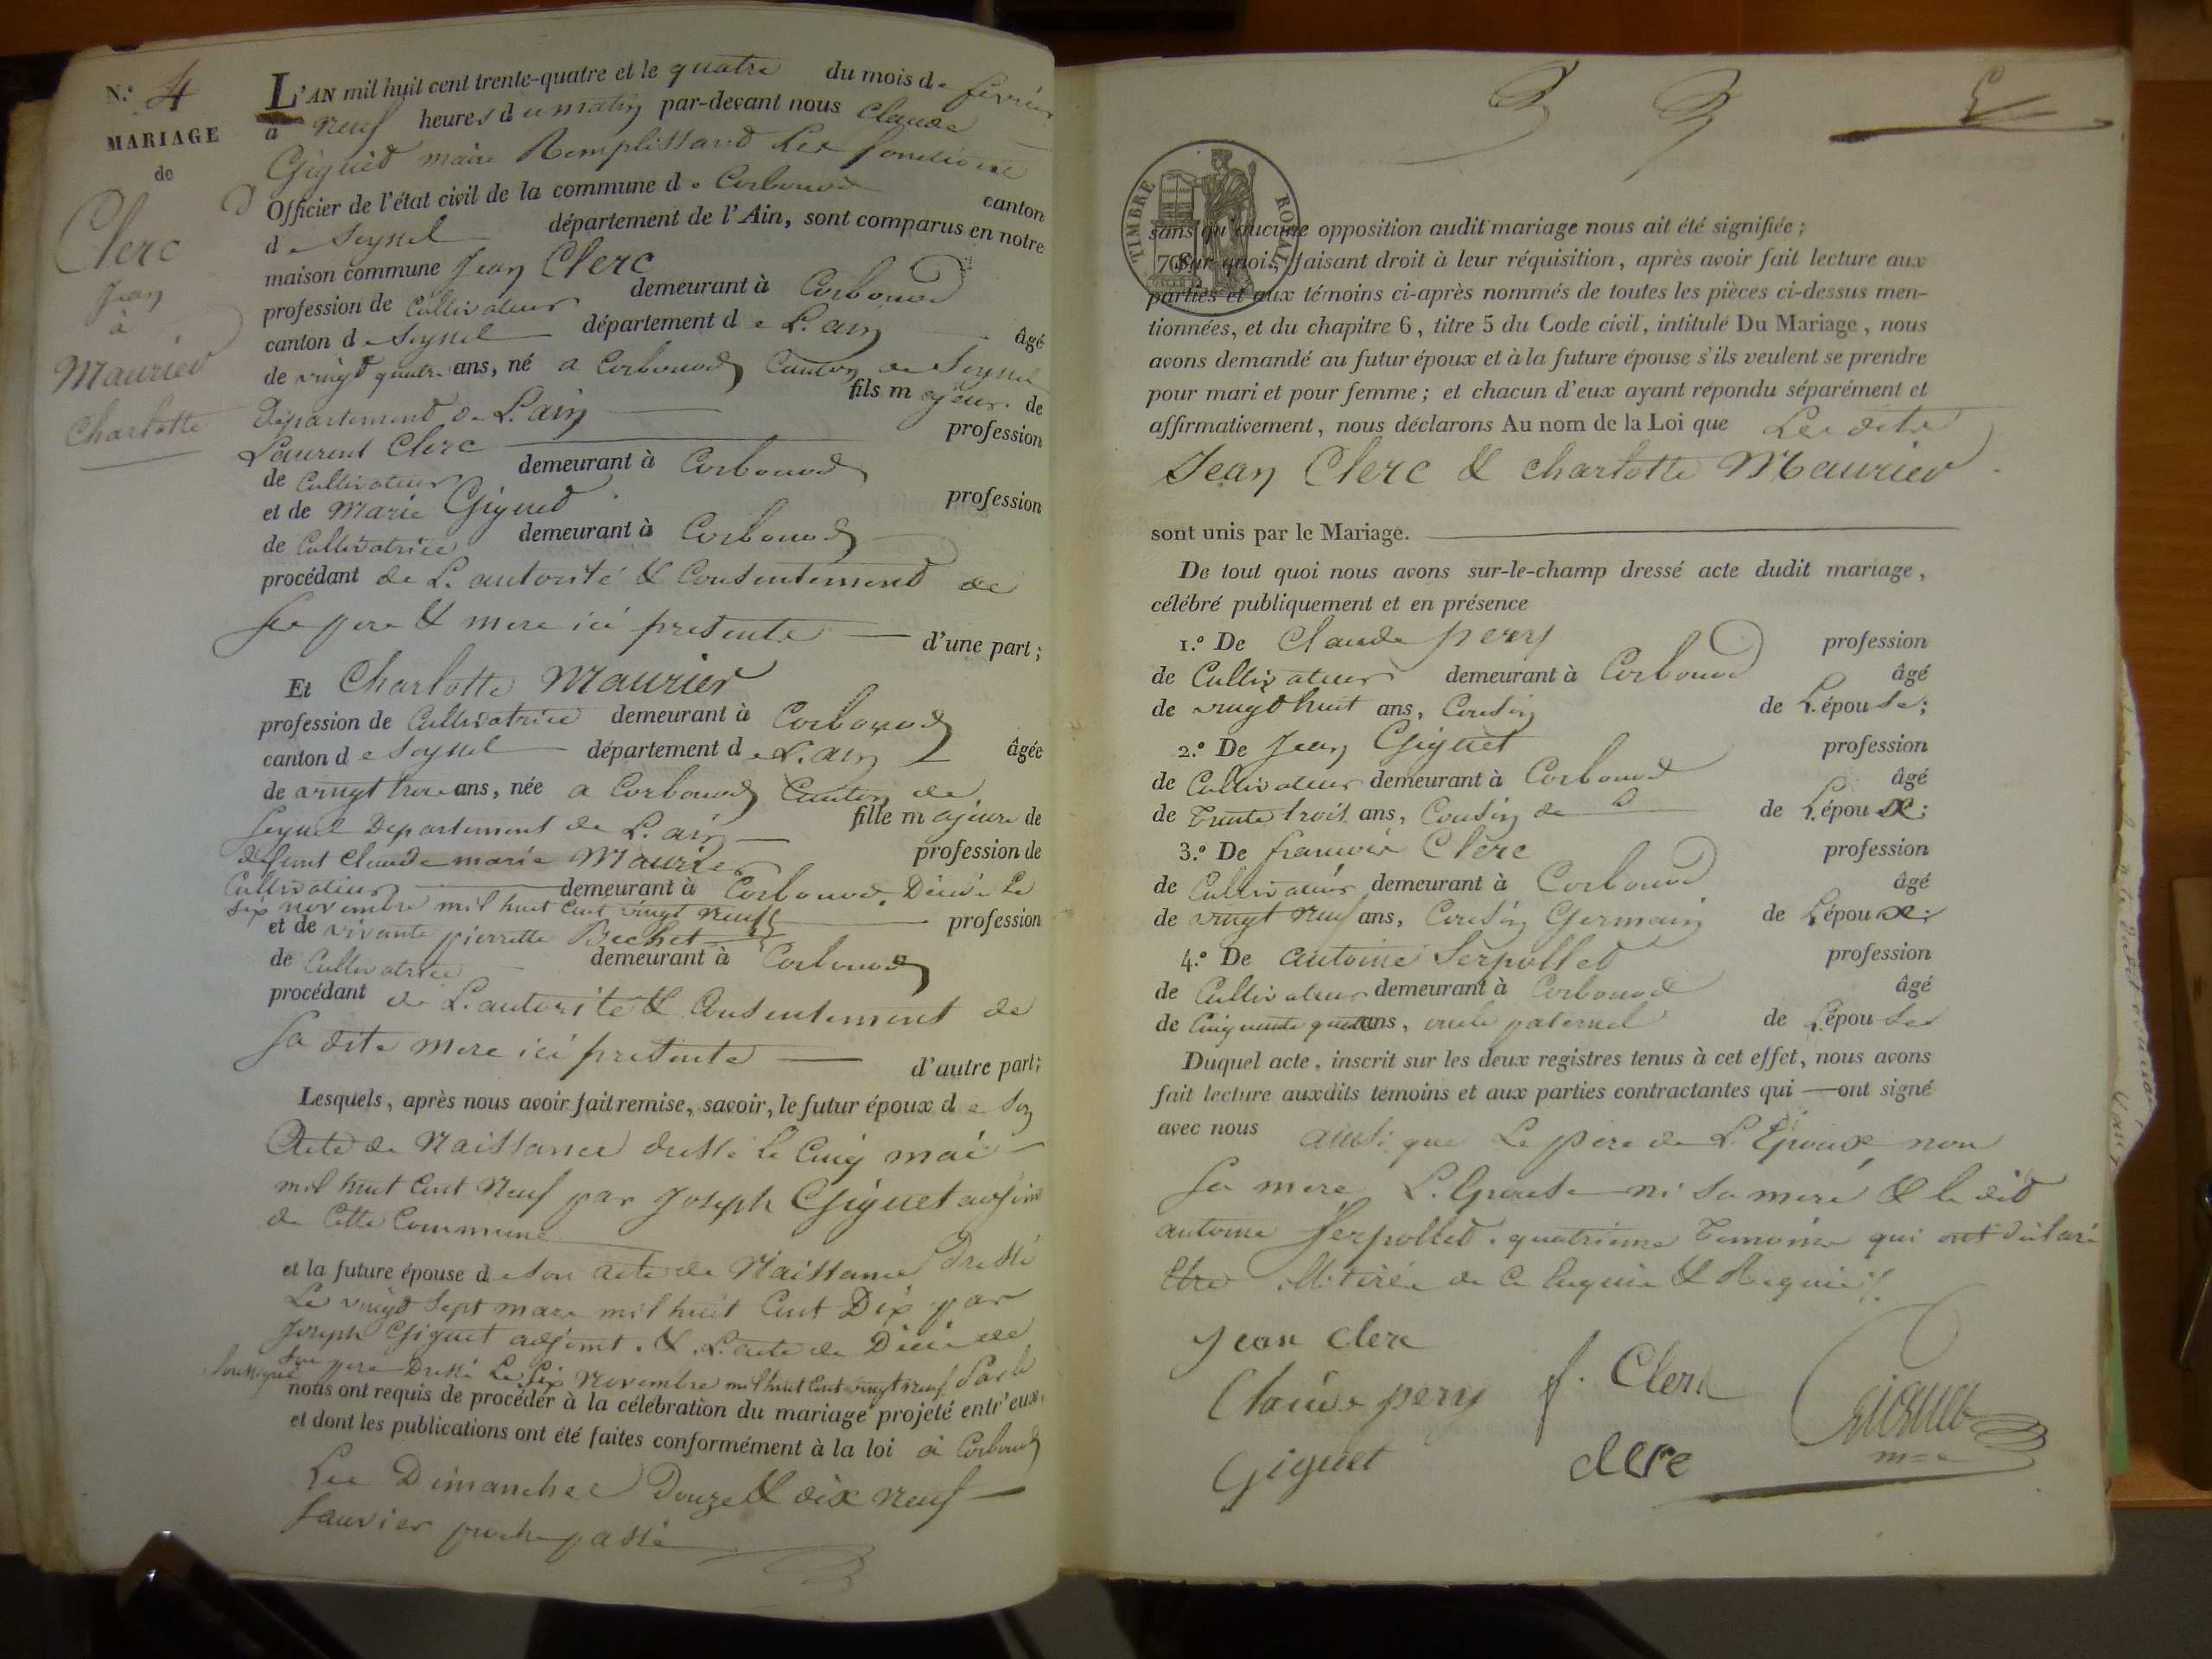 N.º 4
MARIAGE
de
Clerc
Jean
à
Maurier
Charlotte
L'AN mil huit cent trente-quatre et le quatre du mois de février
à neuf heures du matin par-devant nous Claude
Giguet maire Remplissant les fonctions
Officier de l'état civil de la commune de Corbonod canton
de Seyssel département de l'Ain, sont comparus en notre
maison commune Jean Clerc
profession de Cultivateur demeurant à Corbonod
canton de Seyssel département de L'ain âgé
de vingt quatre ans, né a Corbonod Canton de Seyssel
Département de L'ain fils majeur de
Laurent Clerc profession
de Cultivateur demeurant à Corbonod
et de Marie Giguet profession
de Cultivatrice demeurant à Corbonod
procédant de L'autorité & Consentement de
ses pere & mere ici presents d'une part;
Et Charlotte Maurier
profession de Cultivatrice demeurant à Corbonod
canton de Seyssel département de L'ain âgée
de vingt trois ans, née a Corbonod Canton de
Seyssel Département de L'ain fille majeure de
défunt Claude marie Maurier profession de
Cultivateur demeurant à Corbonod. Décédé Le
six novembre mil huit cent vingt neuf
et de vivante pierrette Bechet profession
de Cultivatrice demeurant à Corbonod
procédant de L'autorité & Consentement de
sa dite mere ici presente d'autre part;
Lesquels, après nous avoir fait remise, savoir, le futur époux de son
Acte de Naissance dressé le Cinq mai
mil huit Cent Neuf par Joseph Giguet adjoint
de Cette Commune
et la future épouse de son acte de Naissance Dressé
Le vingt sept mars mil huit Cent Dix par
Joseph Giguet adjoint. & L'acte de Décès de
son pere Dressé Le Six Novembre mil huit Cent vingt neuf Par le
soussigné
nous ont requis de procéder à la célébration du mariage projeté entr'eux,
et dont les publications ont été faites conformément à la loi à Corbonod
Les Dimanches Douze & dix neuf
Janvier proche passé
TIMBRE ROYAL
70
sans qu'aucune opposition audit mariage nous ait été signifiée;
Sur quoi, faisant droit à leur réquisition, après avoir fait lecture aux
parties et aux témoins ci-après nommés de toutes les pièces ci-dessus men-
tionnées, et du chapitre 6, titre 5 du Code civil, intitulé Du Mariage, nous
avons demandé au futur époux et à la future épouse s'ils veulent se prendre
pour mari et pour femme; et chacun d'eux ayant répondu séparément et
affirmativement, nous déclarons Au nom de la Loi que Les dits
Jean Clerc & Charlotte Maurier
sont unis par le Mariage.
De tout quoi nous avons sur-le-champ dressé acte dudit mariage,
célébré publiquement et en présence
1.º De Claude perry profession
de Cultivateur demeurant à Corbonod âgé
de vingt huit ans, Cousin de L'épouse;
2.º De Jean Giguet profession
de Cultivateur demeurant à Corbonod âgé
de Trente trois ans, Cousin de de L'époux;
3.º De francois Clerc profession
de Cultivateur demeurant à Corbonod âgé
de vingt neuf ans, Cousin Germain de L'époux;
4.º De Antoine Serpollet profession
de Cultivateur demeurant à Corbonod âgé
de Cinquante quatre ans, oncle paternel de L'épouse
Duquel acte, inscrit sur les deux registres tenus à cet effet, nous avons
fait lecture auxdits témoins et aux parties contractantes qui ont signé
avec nous ainsi que Le pere de L'Epoux non
sa mere, L'Epouse ni sa mere & le dit
antoine Serpollet. quatrieme Temoins qui ont déclaré
Etre illitérés de Ce Enquis & Requis
Jean Clerc
Claude perry f. Clerc
Giguet Clerc Giguet
mre